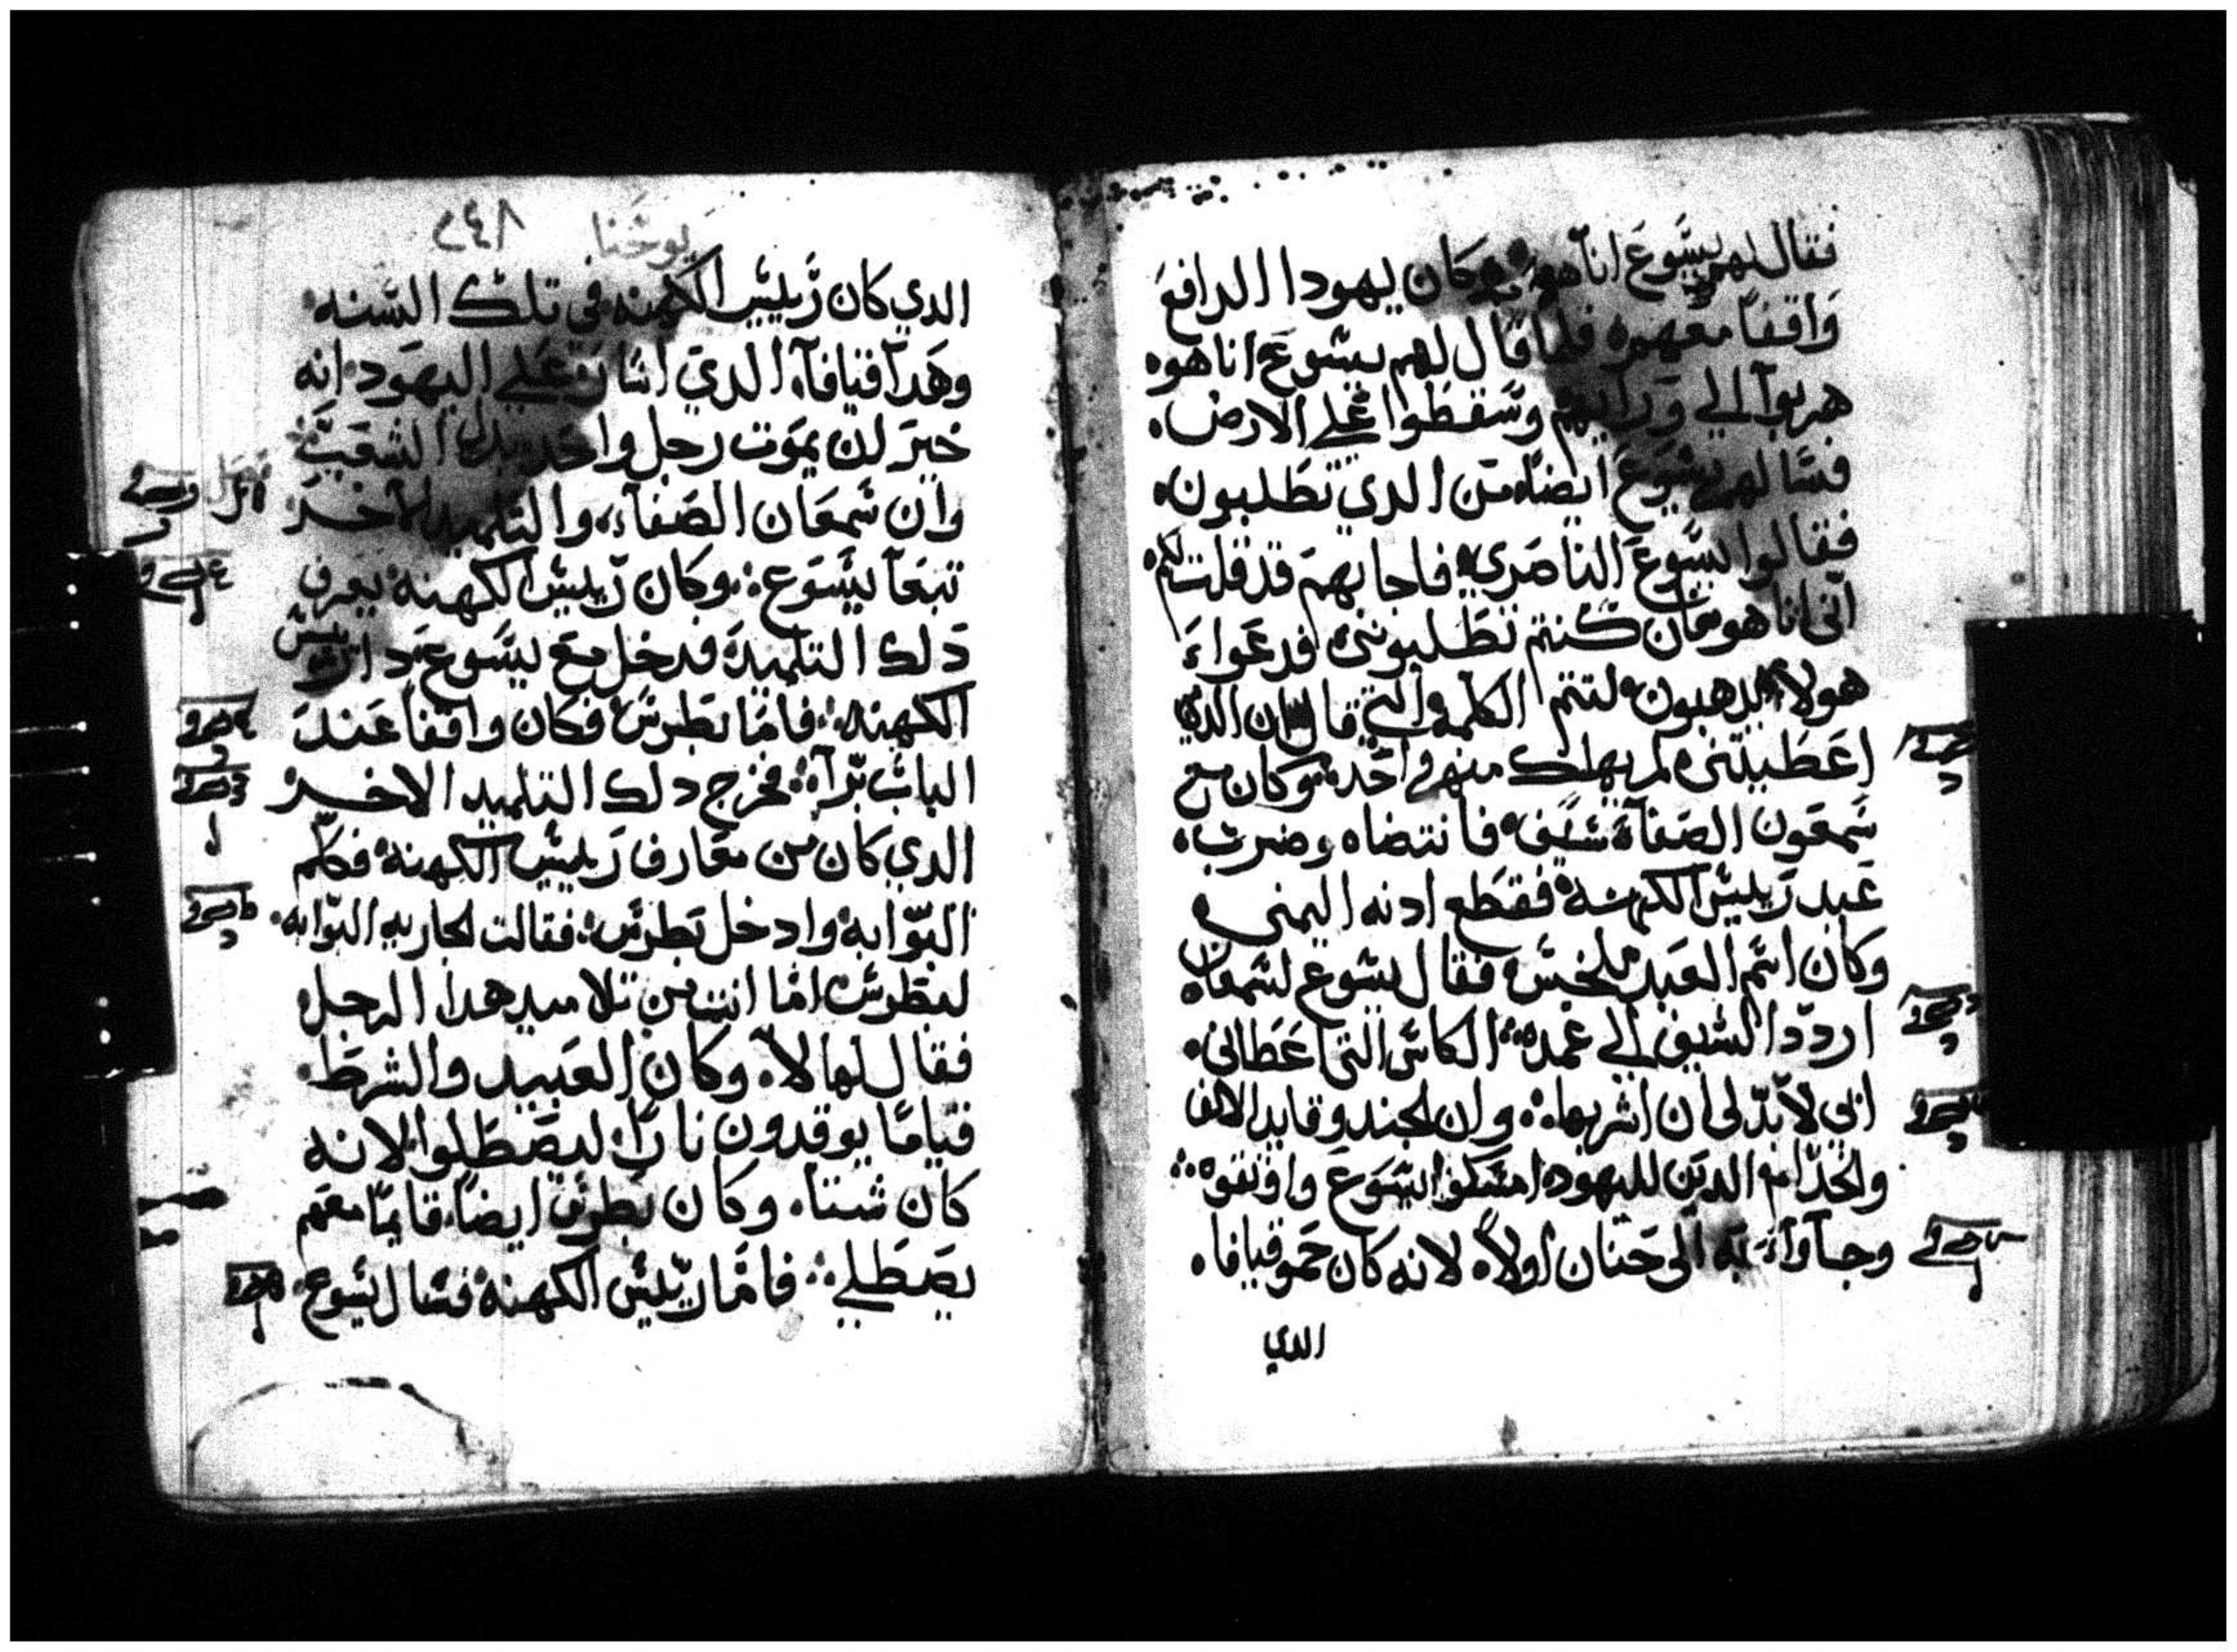 فقال لهم يسوع انا هو وكان يهودا الدافع
واقفا معهم فلما قال لهم يسوع انا هوه
هربوا الي ورايهم وسقطوا علي الارض
فسالهم يسوع ايضا من الدي تطلبون
فقالوا يسوع الناصري فاجابهم قد قلت لكم
اني انا هو فان كنتم تطلبونني فدعوا
هولاء يدهبون لتتم الكلمه التي قال ان الدي
اعطيتني لم يهلك منهم واحد وكان مع
شمعون الصفا سيف فانتضاه وضرب
عبد رييس الكهنه فقطع ادنه اليمني
وكان اسم العبد ملخس فقال يسوع لشمعان
اردد السيف الي غمده الكاس التي اعطاني
ابي لا بد لي ان اشربها وان الجند وقايد الالف
والخدام الدين لليهود امسكوا يسوع واوثقوه
وجاوا به الي حنان اولا لانه كان حمو قيافا
الدي
يوحنا ٢٤٨
الدي كان رييس الكهنه في تلك السنه
وهدا قيافا الدي اشار علي اليهود انه
خير ان يموت رجل واحد بدل الشعب
وان شمعان الصفا والتلميد الاخر
تبعا يسوع وكان رييس الكهنه يعرف
دلك التلميد فدخل مع يسوع دار رييس
الكهنه فاما بطرس فكان واقفا عند
الباب برا فخرج دلك التلميد الاخر
الدي كان من معارف رييس الكهنه فكلم
البوابه وادخل بطرس فقالت الجاريه البوابه
لبطرس اما انت من تلاميد هدا الرجل
فقال لها لا وكان العبيد والشرط
قياما يوقدون نارا ليصطلوا لانه
كان شتا وكان بطرس ايضا قايما معهم
يصطلي فاما رييس الكهنه فسال يسوع